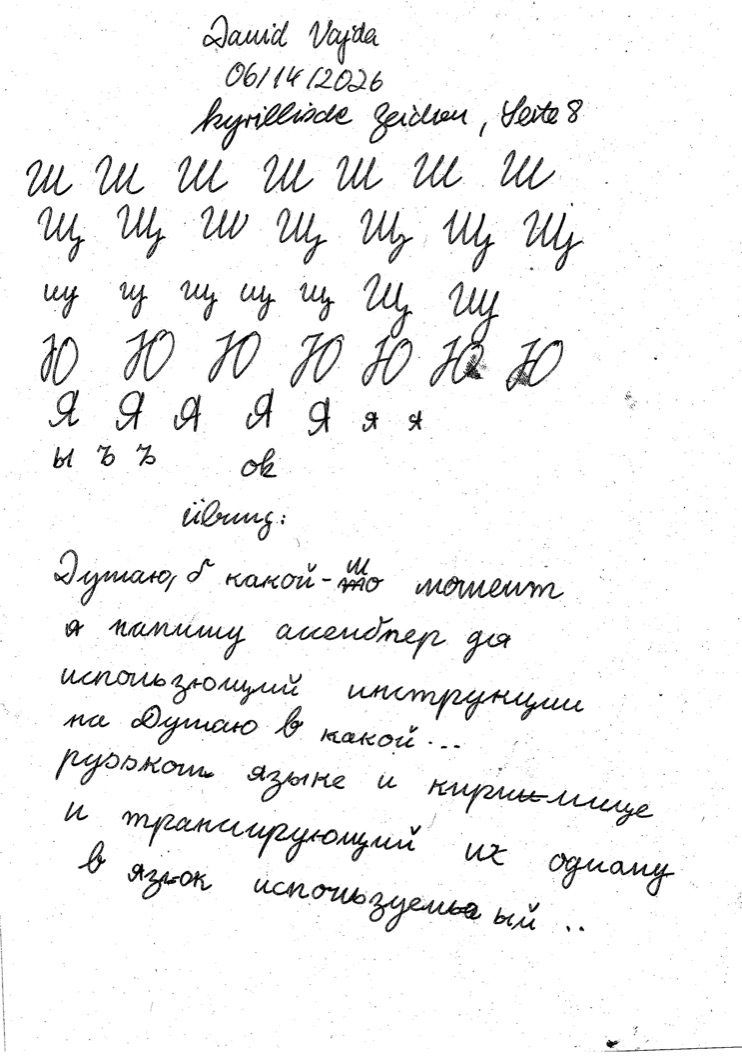 David Vajda
06/14/2026
kyrillische Zeichen, Seite 8
Ш Ш Ш Ш Ш Ш Ш
Щ Щ Ш Щ Щ Щ Щ
щ щ щ щ щ Щ Щ
Ю Ю Ю Ю Ю Ю Ю
Я Я Я Я Я я я
ы ъ ъ ok
Übung:
Думаю, б какой-то момент
я напишу ассемблер для
использющий инструкции
на Думаю в какой...
русском языке и кириллице
и трансирующий их
в язык используемый ..